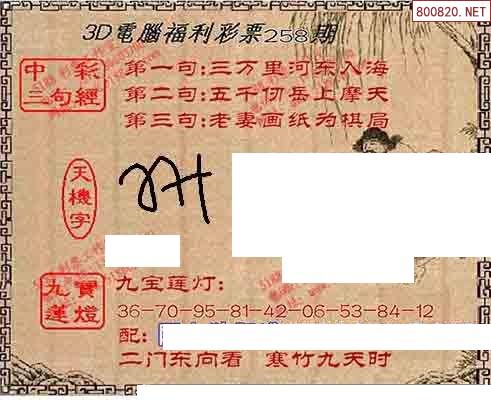 800820.NET
3D電腦福利彩票258期
中彩三句經
第一句:三万里河东入海
第二句:五千仞岳上摩天
第三句:老妻画纸为棋局
天機字
九寶蓮燈
九宝莲灯:
36-70-95-81-42-06-53-84-12
配:
二门东向看 寒竹九天时